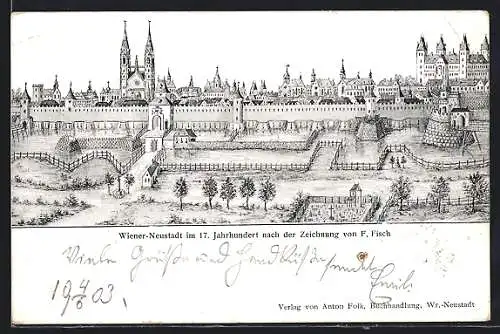 Wiener-Neustadt im 17. Jahrhundert nach der Zeichnung von F. Fisch
Viele Grüße und Handküsse sendet Emil
19 4/6 03.
Verlag von Anton Folk, Buchhandlung, Wr.-Neustadt